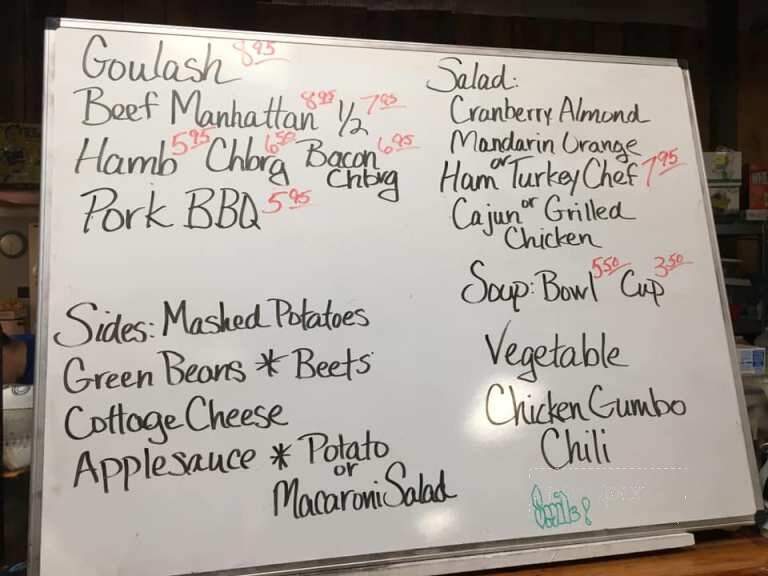 Goulash 8.95
Beef Manhattan 8.95 1/2 7.95
Hamb 5.95 Chbrg 6.50 Bacon Chbrg 6.95
Pork BBQ 5.95
Sides: Mashed Potatoes
Green Beans * Beets
Cottage Cheese
Applesauce * Potato
or
Macaroni Salad
Salad:
Cranberry Almond
Mandarin Orange
or
Ham Turkey Chef 7.95
Cajun or Grilled
Chicken
Soup: Bowl 5.50 Cup 3.50
Vegetable
Chicken Gumbo
Chili